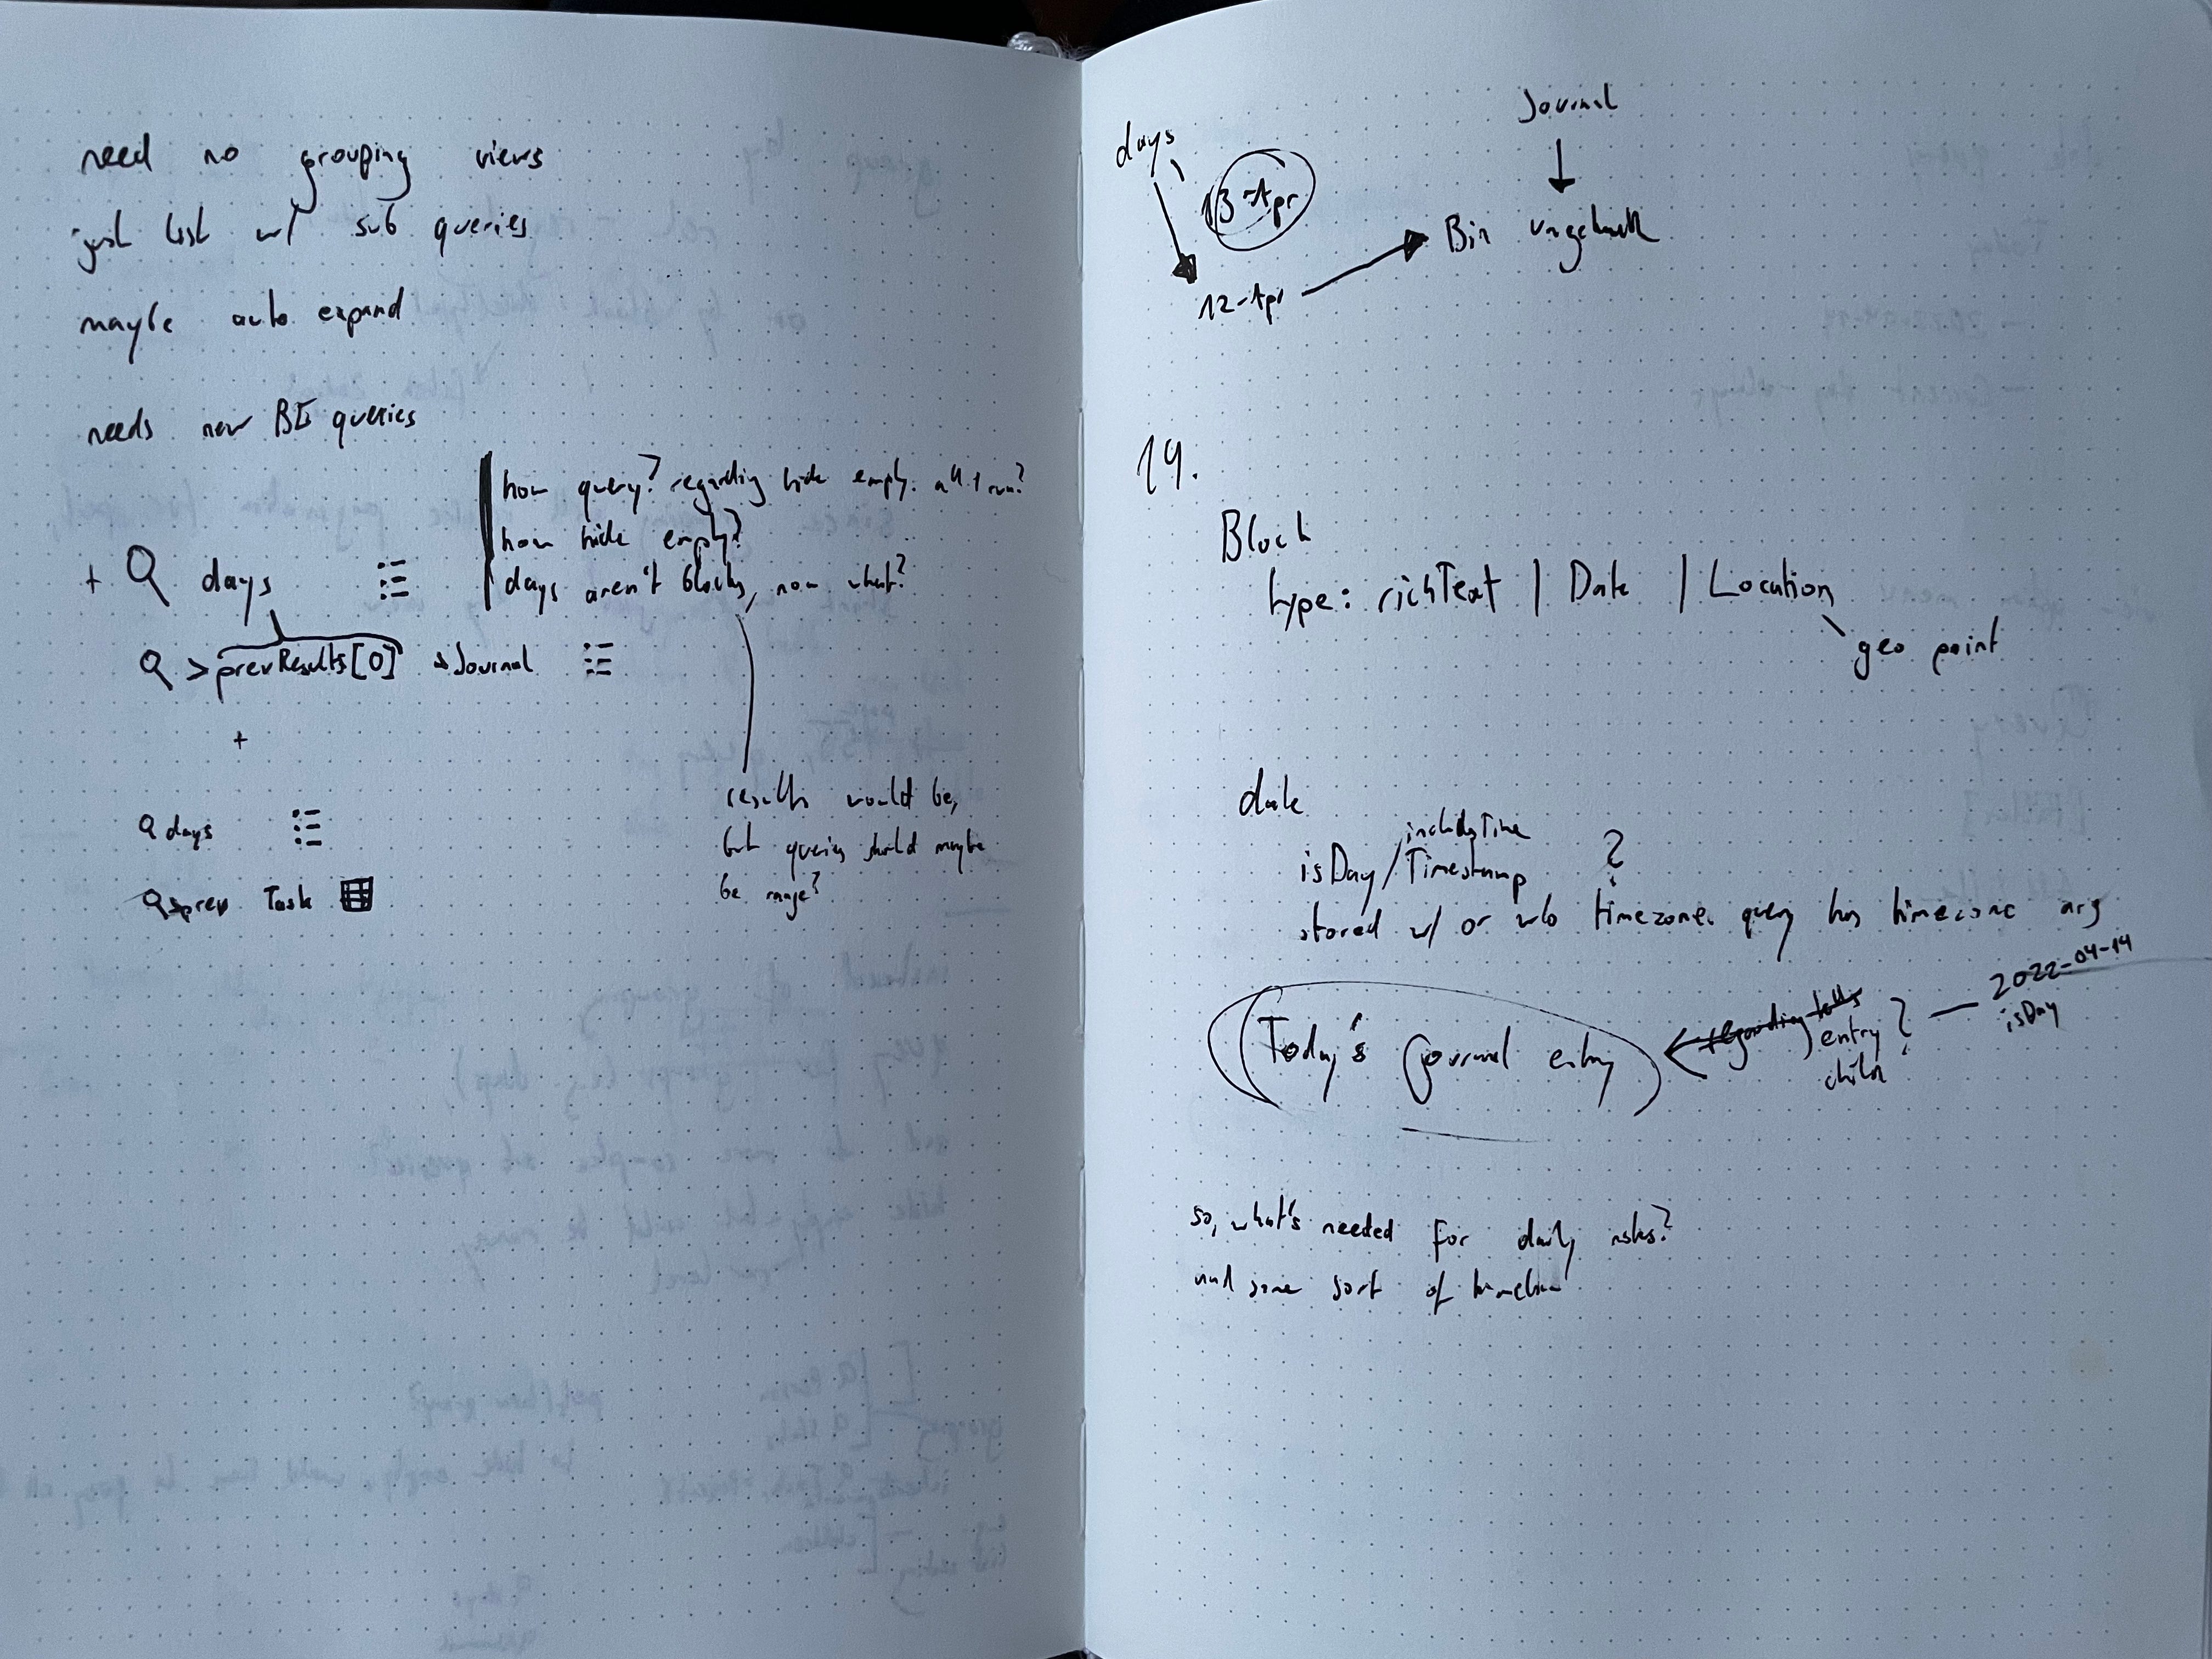 need no grouping views
just list w/ sub queries
maybe auto expand
needs new BE queries
how query? regarding hide empty. all 1 run?
how hide empty?
days aren't blocks, now what?
+ days
> prevResults[0] → Journal
+
days
> prev Task
results would be,
but queries should maybe
be range?
days
13-Apr
12-Apr
Journal
Bin
14.
Block
type: richText | Date | Location
geo point
date
includesTime
isDay / Timestamp ?
stored w/ or w/o timezone. query has timezone arg
Today's journal entry
regarding
entry ?
child
2022-04-14
isDay
so, what's needed for daily notes?
and some sort of timeline